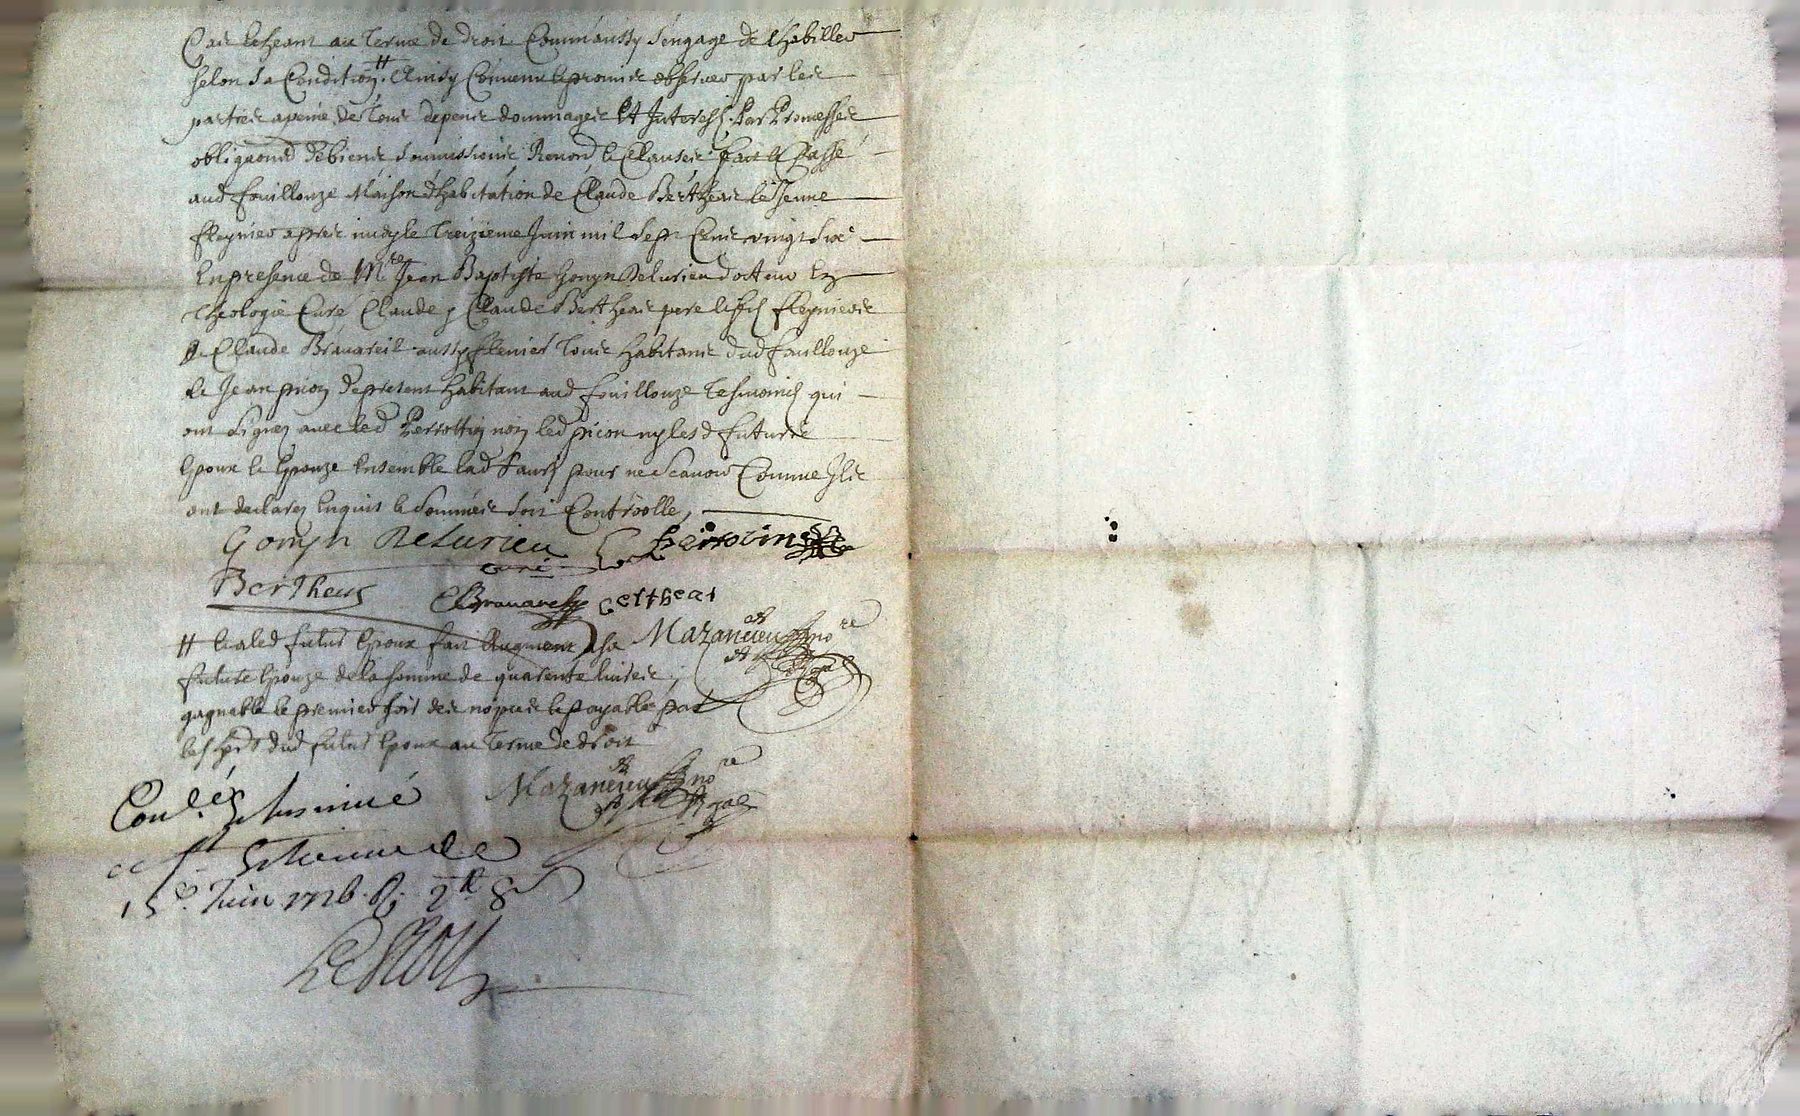 Cas lecheant au terme de droit Comm'aussy s'engage de l'habiller
selon sa Condition # Ainsy Convenu et promis observer par les
parties a peine de tous depens dommages Et Interests Par Promesses
obliga͠ons de biens soumissions Renon͠ et Clauses fait et Passé
aud fouillouze Maison d'habitation de Claude Bertheas le Jeune
fleynier apres midy le treizieme Juin mil sept Cens vingt six
En presence de Mre Jean Baptiste Gonyn Delurieu docteur En
theologie Curé Claude & Claude Bertheas pere et fils fleyniers
& Claude Bravareil aussy flenier tous habitans dud fouillouze
et Jean prion de present habitant aud fouillouze tesmoins qui
ont signez avec led Perrottin non led les d futurs
Epoux et Epouze Ensemble lad faure pour ne Scavoir Comme Ils
ont declarez Enquis et sommés soit Controolle,
Gonyn Delurieu curé perrotin
Bertheas CBravareil bertheas
# Et aled futur Epoux fait Augment a sa Mazancieu nore
future Epouze de la somme de quarente livres,
gagnable le premier fils des nopces et payable par
les dud futur Epoux au terme de droit
Con.lé & Insinué Mazancieu nore
a St Etienne le
15e Juin 1726. R. 2tt 8s